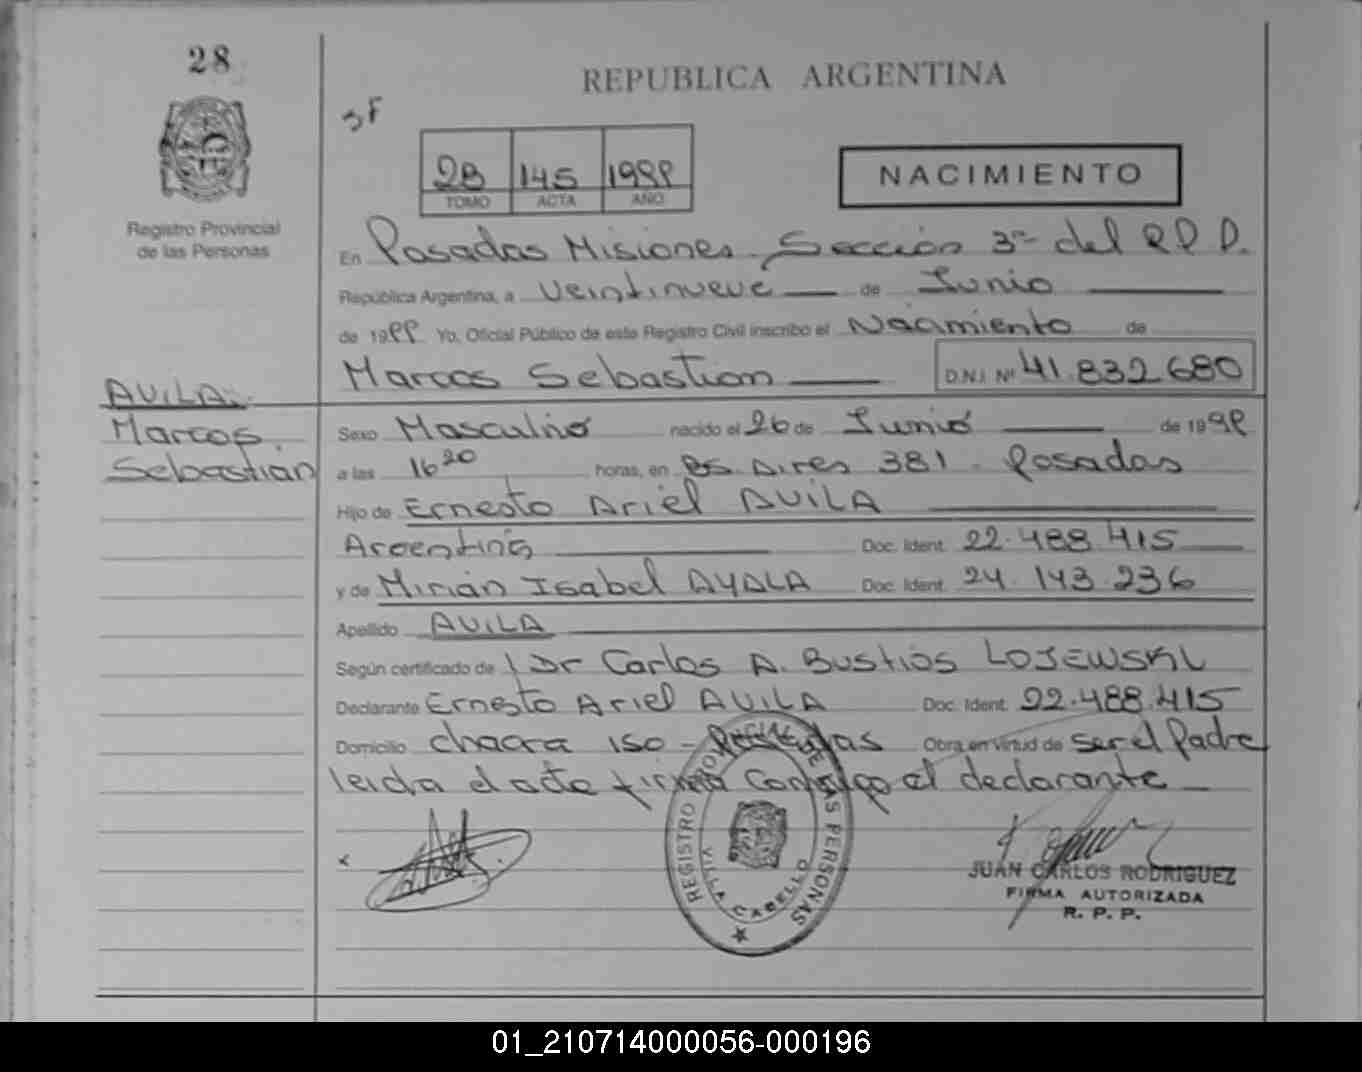 28
REPUBLICA ARGENTINA
3F
2B 145 1999
TOMO ACTA AÑO
NACIMIENTO
Registro Provincial
de las Personas
En Posadas Misiones Sección 3ra del R P P.
República Argentina, a veintinueve de Junio
de 1999 Yo, Oficial Público de este Registro Civil inscribo el Nacimiento de
Marcos Sebastian D.N.I. Nº 41.832.680
AVILA
Marcos
Sebastián
Sexo Masculino nacido el 26 de Junio de 1999
a las 16 20 horas, en Bs Aires 381 - Posadas
Hijo de Ernesto Ariel AVILA
Argentino Doc. Ident. 22.488.415
y de Mirian Isabel AYALA Doc. Ident. 24.143.236
Apellido AVILA
Según certificado de Dr Carlos A. Bustios LOJEWSKI
Declarante Ernesto Ariel AVILA Doc. Ident. 22.488.415
Domicilio chacra 150 - Posadas Obra en virtud de ser el Padre
leida el acta firma conmigo el declarante
REGISTRO PROVINCIAL DE LAS PERSONAS
VILLA CABELLO
JUAN CARLOS RODRIGUEZ
FIRMA AUTORIZADA
R. P. P.
01_210714000056-000196